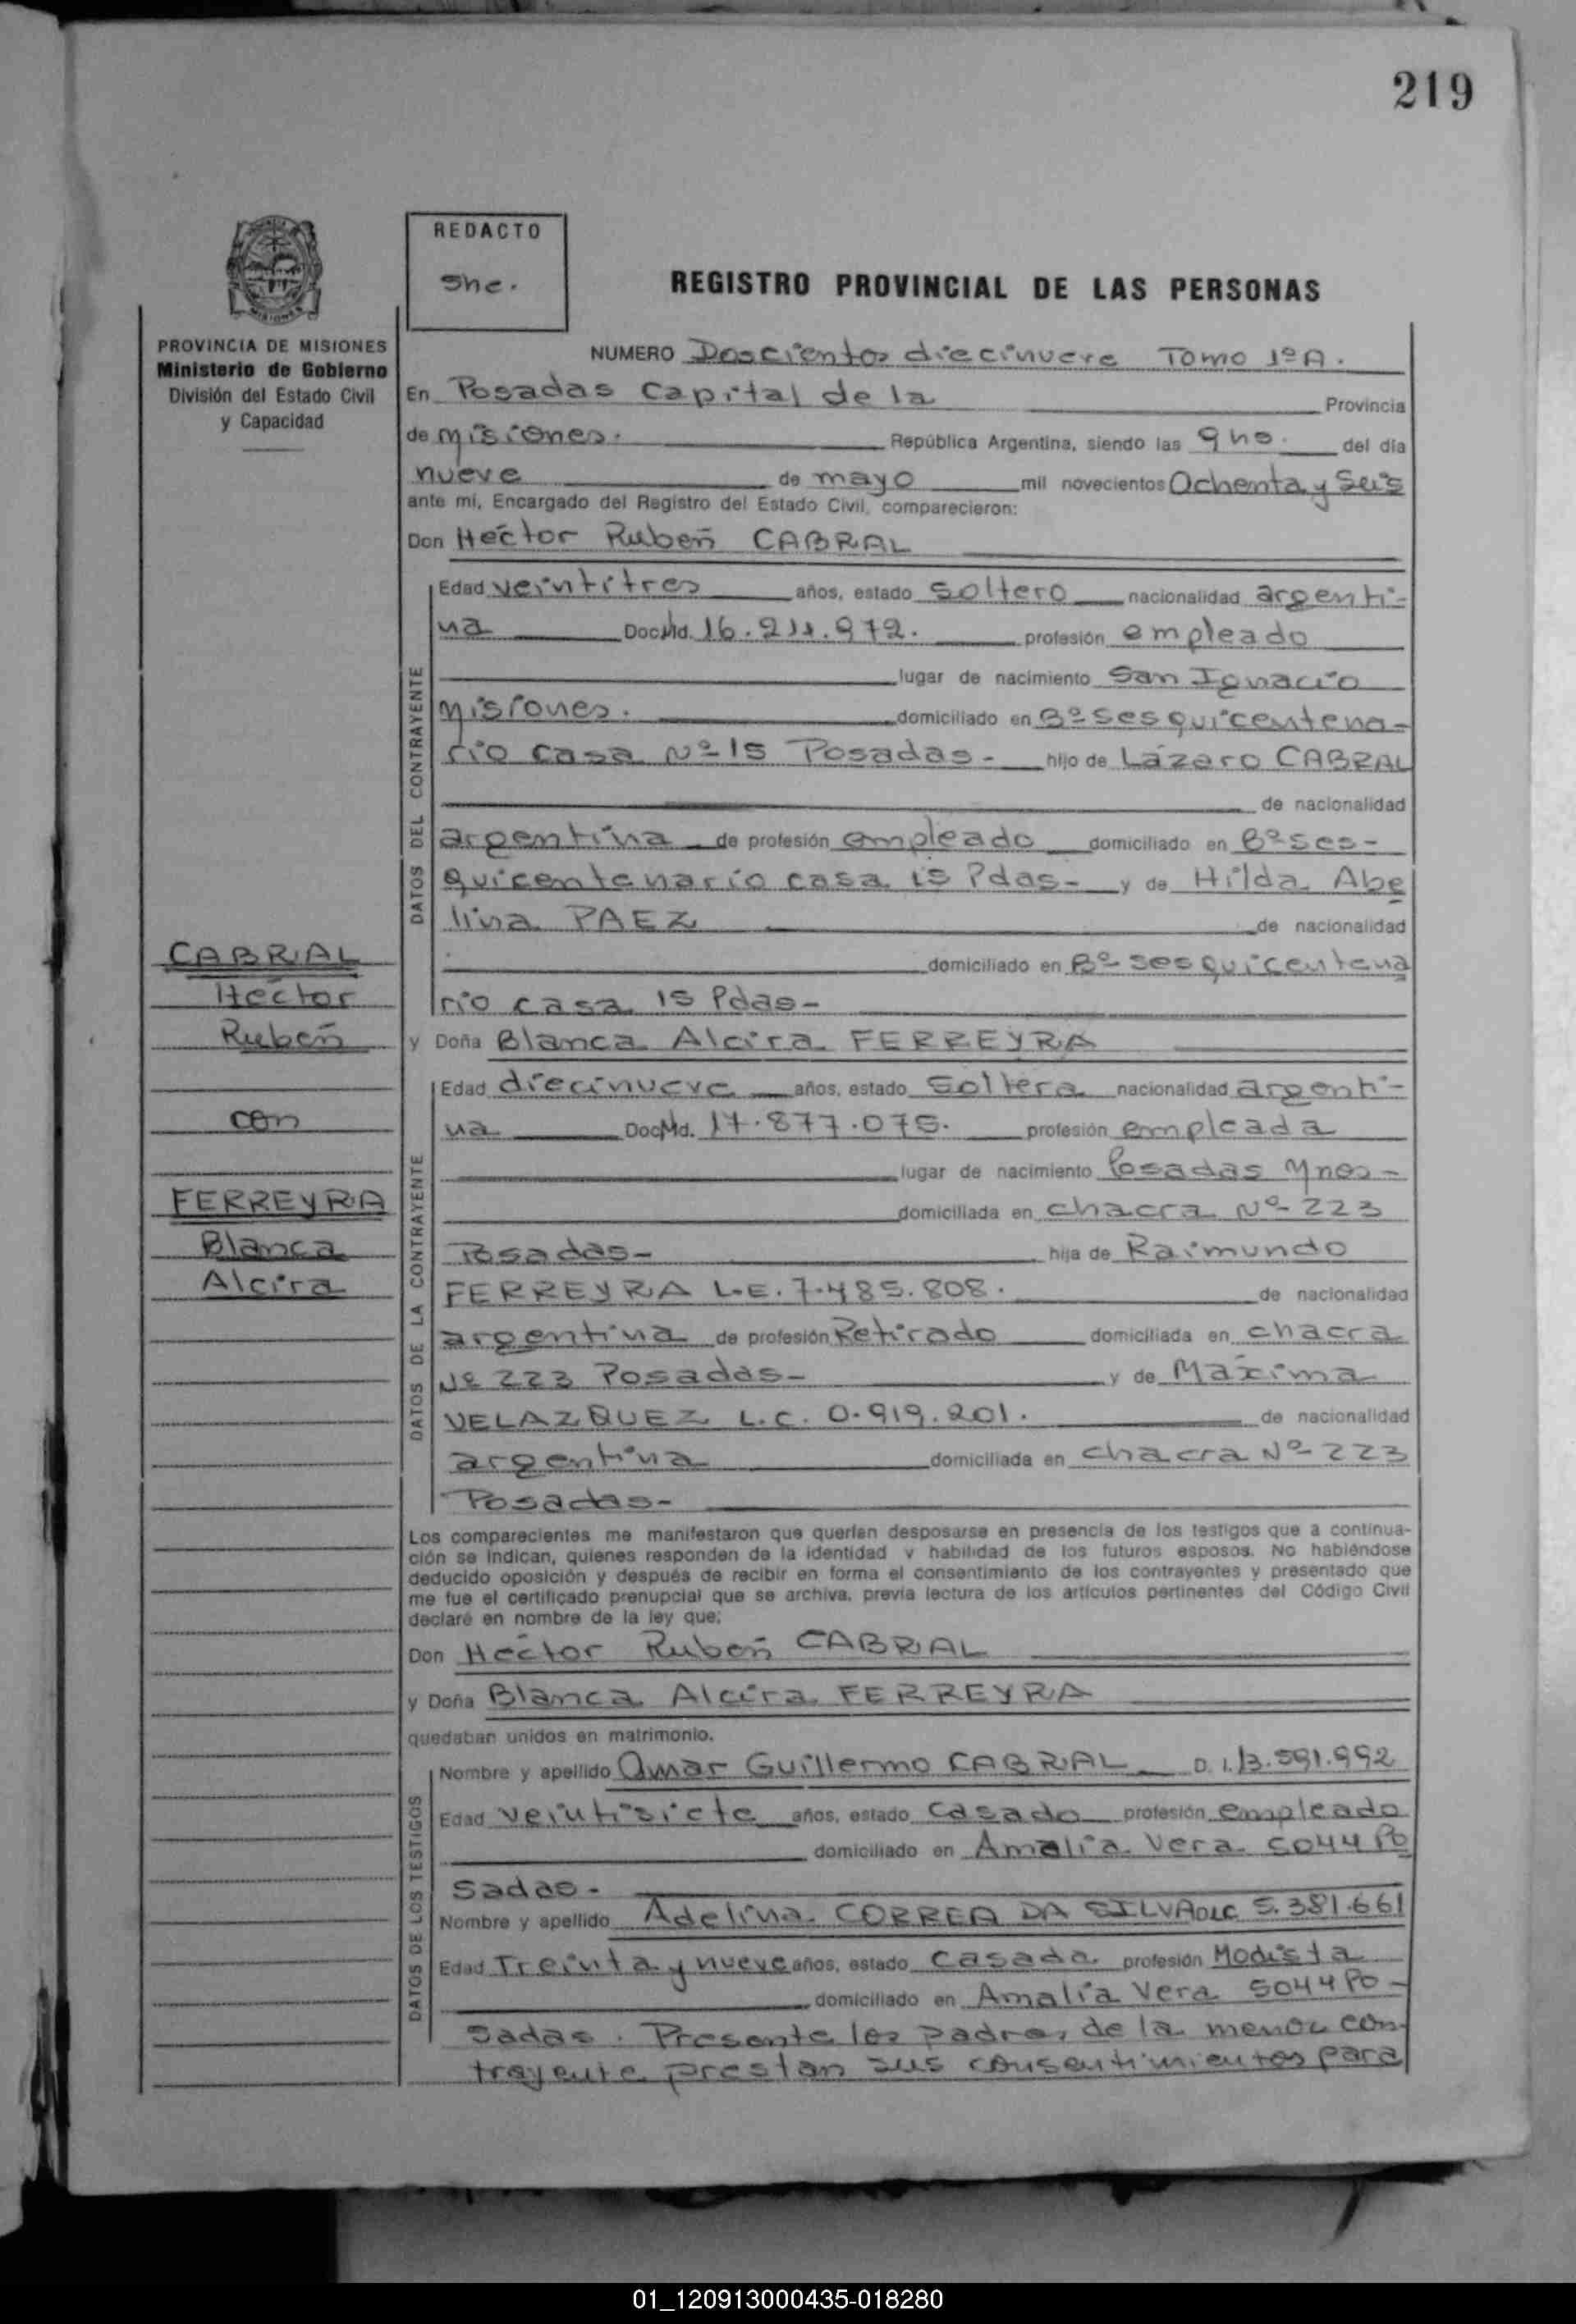 219
REDACTO
She.
REGISTRO PROVINCIAL DE LAS PERSONAS
PROVINCIA DE MISIONES
Ministerio de Gobierno
División del Estado Civil
y Capacidad
NUMERO Doscientos diecinueve Tomo 1º A.
En Posadas Capital de la Provincia
de Misiones. República Argentina, siendo las 9 hs. del día
nueve de mayo mil novecientos Ochenta y Seis
ante mí, Encargado del Registro del Estado Civil, comparecieron:
Don Héctor Rubén CABRAL
DATOS DEL CONTRAYENTE
Edad veintitres años, estado Soltero nacionalidad argenti-
na Doc. Nd. 16.211.972. profesión empleado
lugar de nacimiento San Ignacio
Misiones. domiciliado en Bº Sesquicentena-
rio casa Nº 15 Posadas- hijo de Lázaro CABRAL
de nacionalidad
argentina de profesión empleado domiciliado en Bº Ses-
quicentenario casa 15 Pdas- y de Hilda Abe
lina PAEZ de nacionalidad
domiciliado en Bº Sesquicentena
rio casa 15 Pdas-
CABRAL
Héctor
Rubén
con
FERREYRA
Blanca
Alcira
y Doña Blanca Alcira FERREYRA
DATOS DE LA CONTRAYENTE
Edad diecinueve años, estado Soltera nacionalidad argenti-
na Doc. Nd. 17.877.075. profesión empleada
lugar de nacimiento Posadas Mnes-
domiciliada en chacra Nº 223
Posadas- hija de Raimundo
FERREYRA L.E. 7.485.808. de nacionalidad
argentina de profesión Retirado domiciliada en chacra
Nº 223 Posadas- y de Máxima
VELAZQUEZ L.C. 0.919.201. de nacionalidad
argentina domiciliada en chacra Nº 223
Posadas-
Los comparecientes me manifestaron que querían desposarse en presencia de los testigos que a continua-
ción se indican, quienes responden de la identidad y habilidad de los futuros esposos. No habiéndose
deducido oposición y después de recibir en forma el consentimiento de los contrayentes y presentado que
me fue el certificado prenupcial que se archiva, previa lectura de los artículos pertinentes del Código Civil
declaré en nombre de la ley que:
Don Héctor Rubén CABRAL
y Doña Blanca Alcira FERREYRA
quedaban unidos en matrimonio.
DATOS DE LOS TESTIGOS
Nombre y apellido Omar Guillermo CABRAL D.I. 13.591.992
Edad veintisiete años, estado Casado profesión empleado
domiciliado en Amalia Vera 5044 Po
sadas-
Nombre y apellido Adelina CORREA DA SILVA DLC 5.381.661
Edad Treinta y nueve años, estado Casada profesión Modista
domiciliado en Amalia Vera 5044 Po-
sadas. Presente los padres de la menor con-
trayente prestan sus consentimientos para
01_120913000435-018280